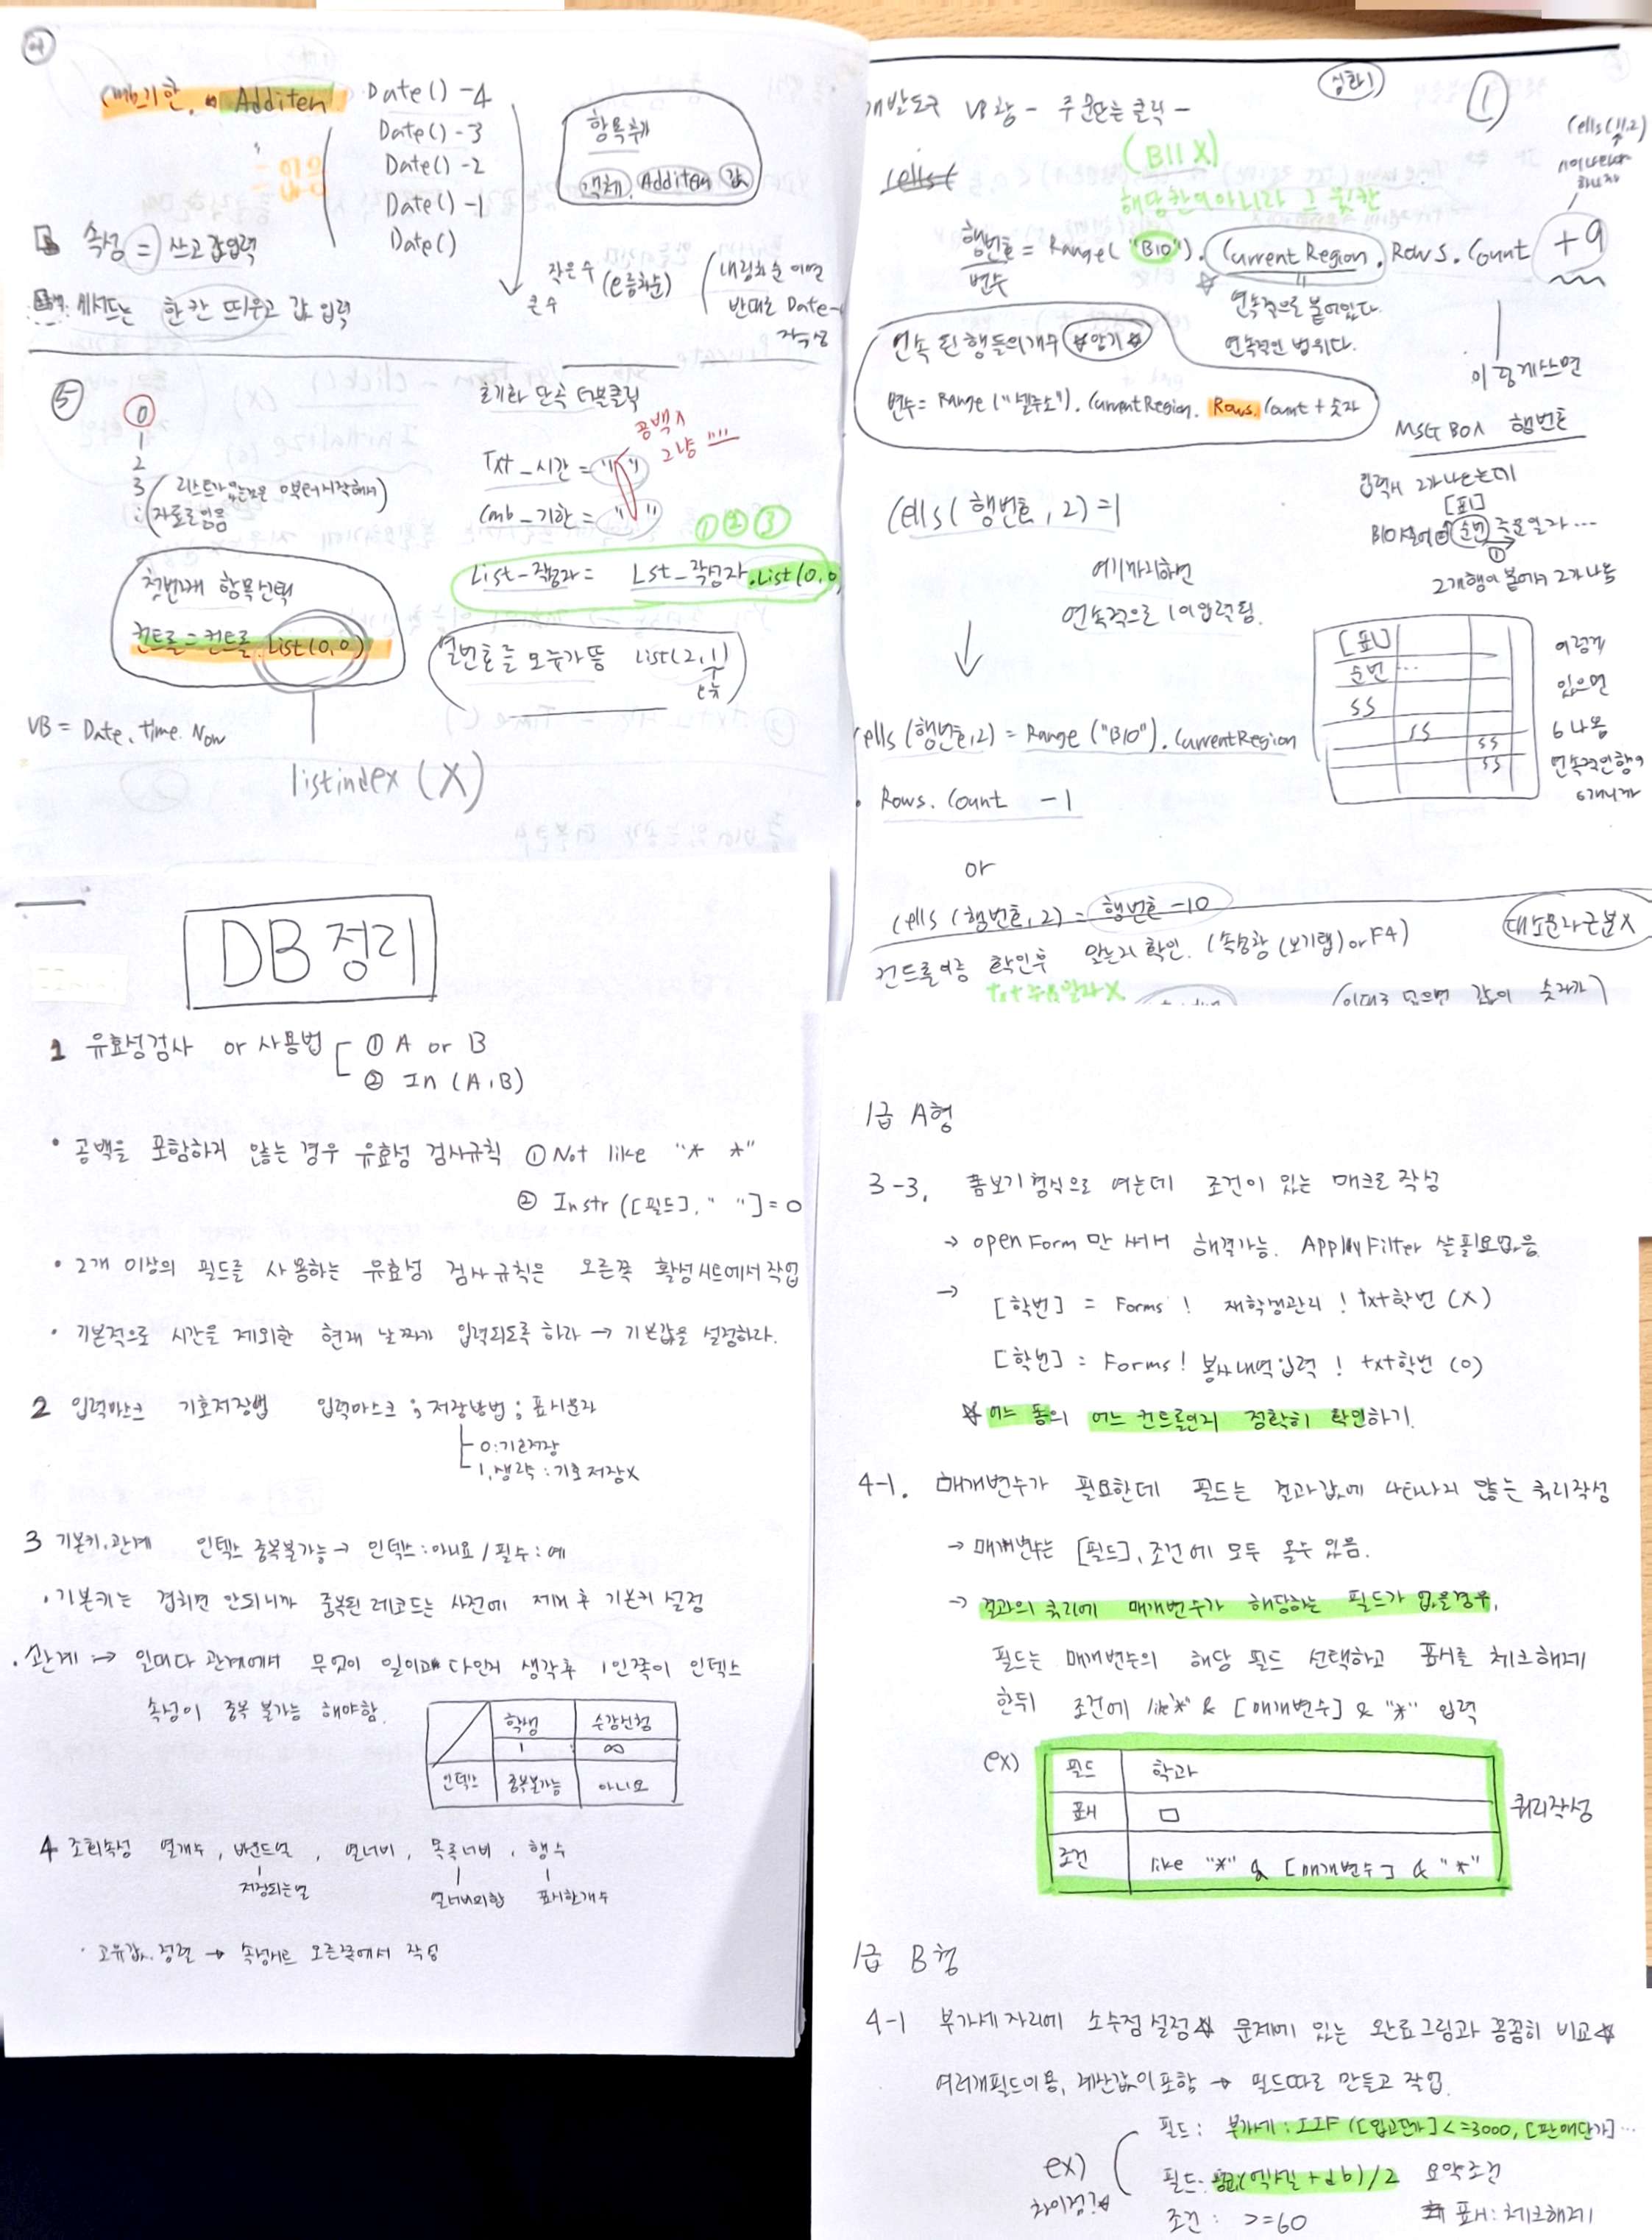 ④
cmb기한. Additem Date() -4
Date() -3
Date() -2
Date() -1
Date()
항목추가
객체. Additem 값
속성 = 쓰고 값입력
한칸 띄우고 값 입력
작은수
큰수
(오름차순)
내림차순 이면
반대로 Date-
작성
⑤
0
1
2
3
리스트가
자료로 있음
첫번째 항목선택
컨트롤=컨트롤.List(0,0)
VB = Date, time. Now
listindex (X)
초기화 단추 더블클릭
공백X
그냥 ""
Txt_시간 = " "
Cmb_기한 = " "
① ② ③
List_작성자 = Lst_작성자.List(0,0
열번호를 모두가 뜸 List(2,1)
심화1
①
개발도구 VB창 - 주문단추 클릭 -
Cells(
(B11 X)
해당칸이 아니라 그 윗칸
Cells(11,2)
행번호 = Range("B10"). Current Region. Rows. Count +9
변수
연속적으로 붙어있다.
연속적인 범위다.
연속된 행들의 개수 ☆암기☆
변수 = Range("셀주소"). CurrentRegion. Rows. Count + 숫자
이렇게 쓰면
MSG BOX 행번호
입력시 2가 나오는데
[표1]
2개행이 붙어서 2가 나옴
Cells(행번호, 2) = 1
여기까지하면
연속적으로 1이 입력됨.
[표1]
순번 ...
ss
ss
ss
ss
이렇게
있으면
6 나옴
연속적인행이
6개니까
Cells(행번호,2) = Range("B10"). CurrentRegion
. Rows. Count -1
or
Cells (행번호, 2) = 행번호 -10
대소문자구분X
컨트롤이름 확인후 맞는지 확인. (속성창 (보기탭) or F4)
DB 정리
1 유효성검사 or 사용법 ① A or B
② In (A,B)
• 공백을 포함하지 않는 경우 유효성 검사규칙 ① Not like "* *"
② Instr ([필드], " "] = 0
• 2개 이상의 필드를 사용하는 유효성 검사규칙은 오른쪽 활성시트에서 작업
• 기본적으로 시간을 제외한 현재 날짜가 입력되도록 하라 → 기본값을 설정하라.
2 입력마스크 기호저장법 입력마스크 ; 저장방법 ; 표시문자
0:기호저장
1,생략 : 기호 저장X
3 기본키,관계 인덱스 중복불가능 → 인덱스:아니요 / 필수:예
• 기본키는 겹치면 안되니까 중복된 레코드는 사전에 제거 후 기본키 설정
. 관계 → 일대다 관계에서 무엇이 일이고 다인지 생각후 1인쪽이 인덱스
속성이 중복 불가능 해야함.
학생 수강신청
1 : ∞
인덱스 중복불가능 아니요
4 조회속성 열개수, 바운드열, 열너비, 목록너비, 행수
저장되는열 열너비의합 표시할개수
• 고유값, 정렬 → 속성시트 오른쪽에서 작성
1급 A형
3-3. 폼보기형식으로 여는데 조건이 있는 매크로 작성
→ open Form 만 써서 해결가능. ApplayFilter 쓸 필요없음.
→ [학번] = Forms ! 재학생관리 ! txt학번 (X)
[학번] = Forms ! 봉사내역입력 ! txt학번 (O)
☆ 어느 폼의 어느 컨트롤인지 정확히 확인하기.
4-1. 매개변수가 필요한데 필드는 결과값에 나타나지 않는 쿼리작성
→ 매개변수는 [필드], 조건에 모두 올수 있음.
→ 결과의 쿼리에 매개변수가 해당하는 필드가 없을경우,
필드는 매개변수의 해당 필드 선택하고 표시를 체크해제
한뒤 조건에 like"*" & [매개변수] & "*" 입력
ex)
필드 학과
표시 □
조건 like "*" & [매개변수] & "*"
쿼리작성
1급 B형
4-1 부가세 자리에 소수점 설정☆ 문제에 있는 완료그림과 꼼꼼히 비교☆
여러개필드이용, 계산값이 포함 → 필드따로 만들고 작업
ex)
차이점?☆
필드 : 부가세 : IIF ([입고단가] <=3000, [판매단가] ...
필드: (엑셀 + db)/2 요약조건
조건 : >=60 표시:체크해제